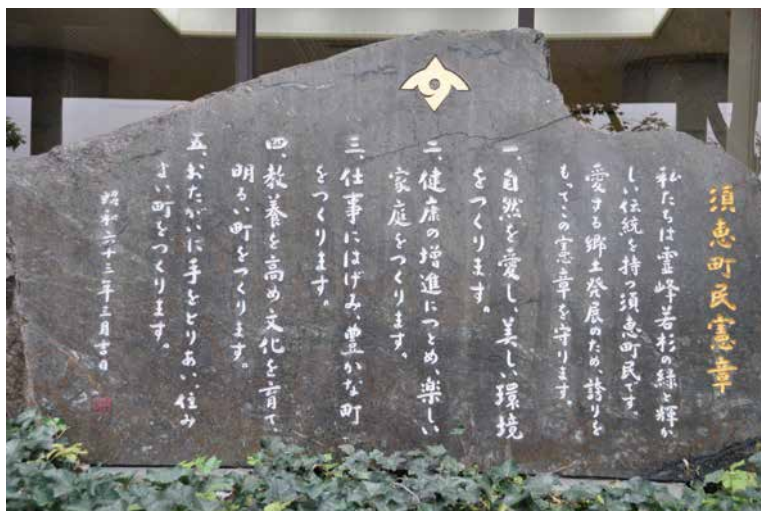 須恵町民憲章
私たちは霊峰若杉の緑と輝か
しい伝統を持つ須恵町民です。
愛する郷土発展のため、誇りを
もってこの憲章を守ります。
一、自然を愛し、美しい環境
をつくります。
二、健康の増進につとめ、楽しい
家庭をつくります。
三、仕事にはげみ、豊かな町
をつくります。
四、教養を高め文化を育て
明るい町をつくります。
五、おたがいに手をとりあい、住み
よい町をつくります。
昭和六十三年三月吉日